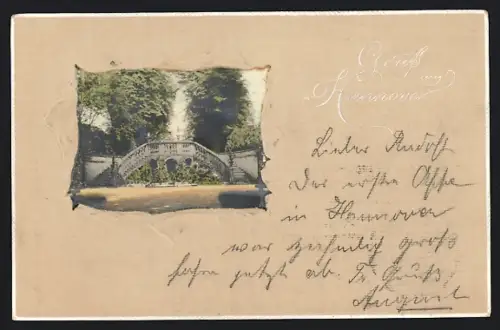 Gruß
aus
Hannover
Lieber Rudolf
Der erste Affe
in Hannover
war ziehmlig groß
fahre jetzt ab. Fr. Gruß,
August